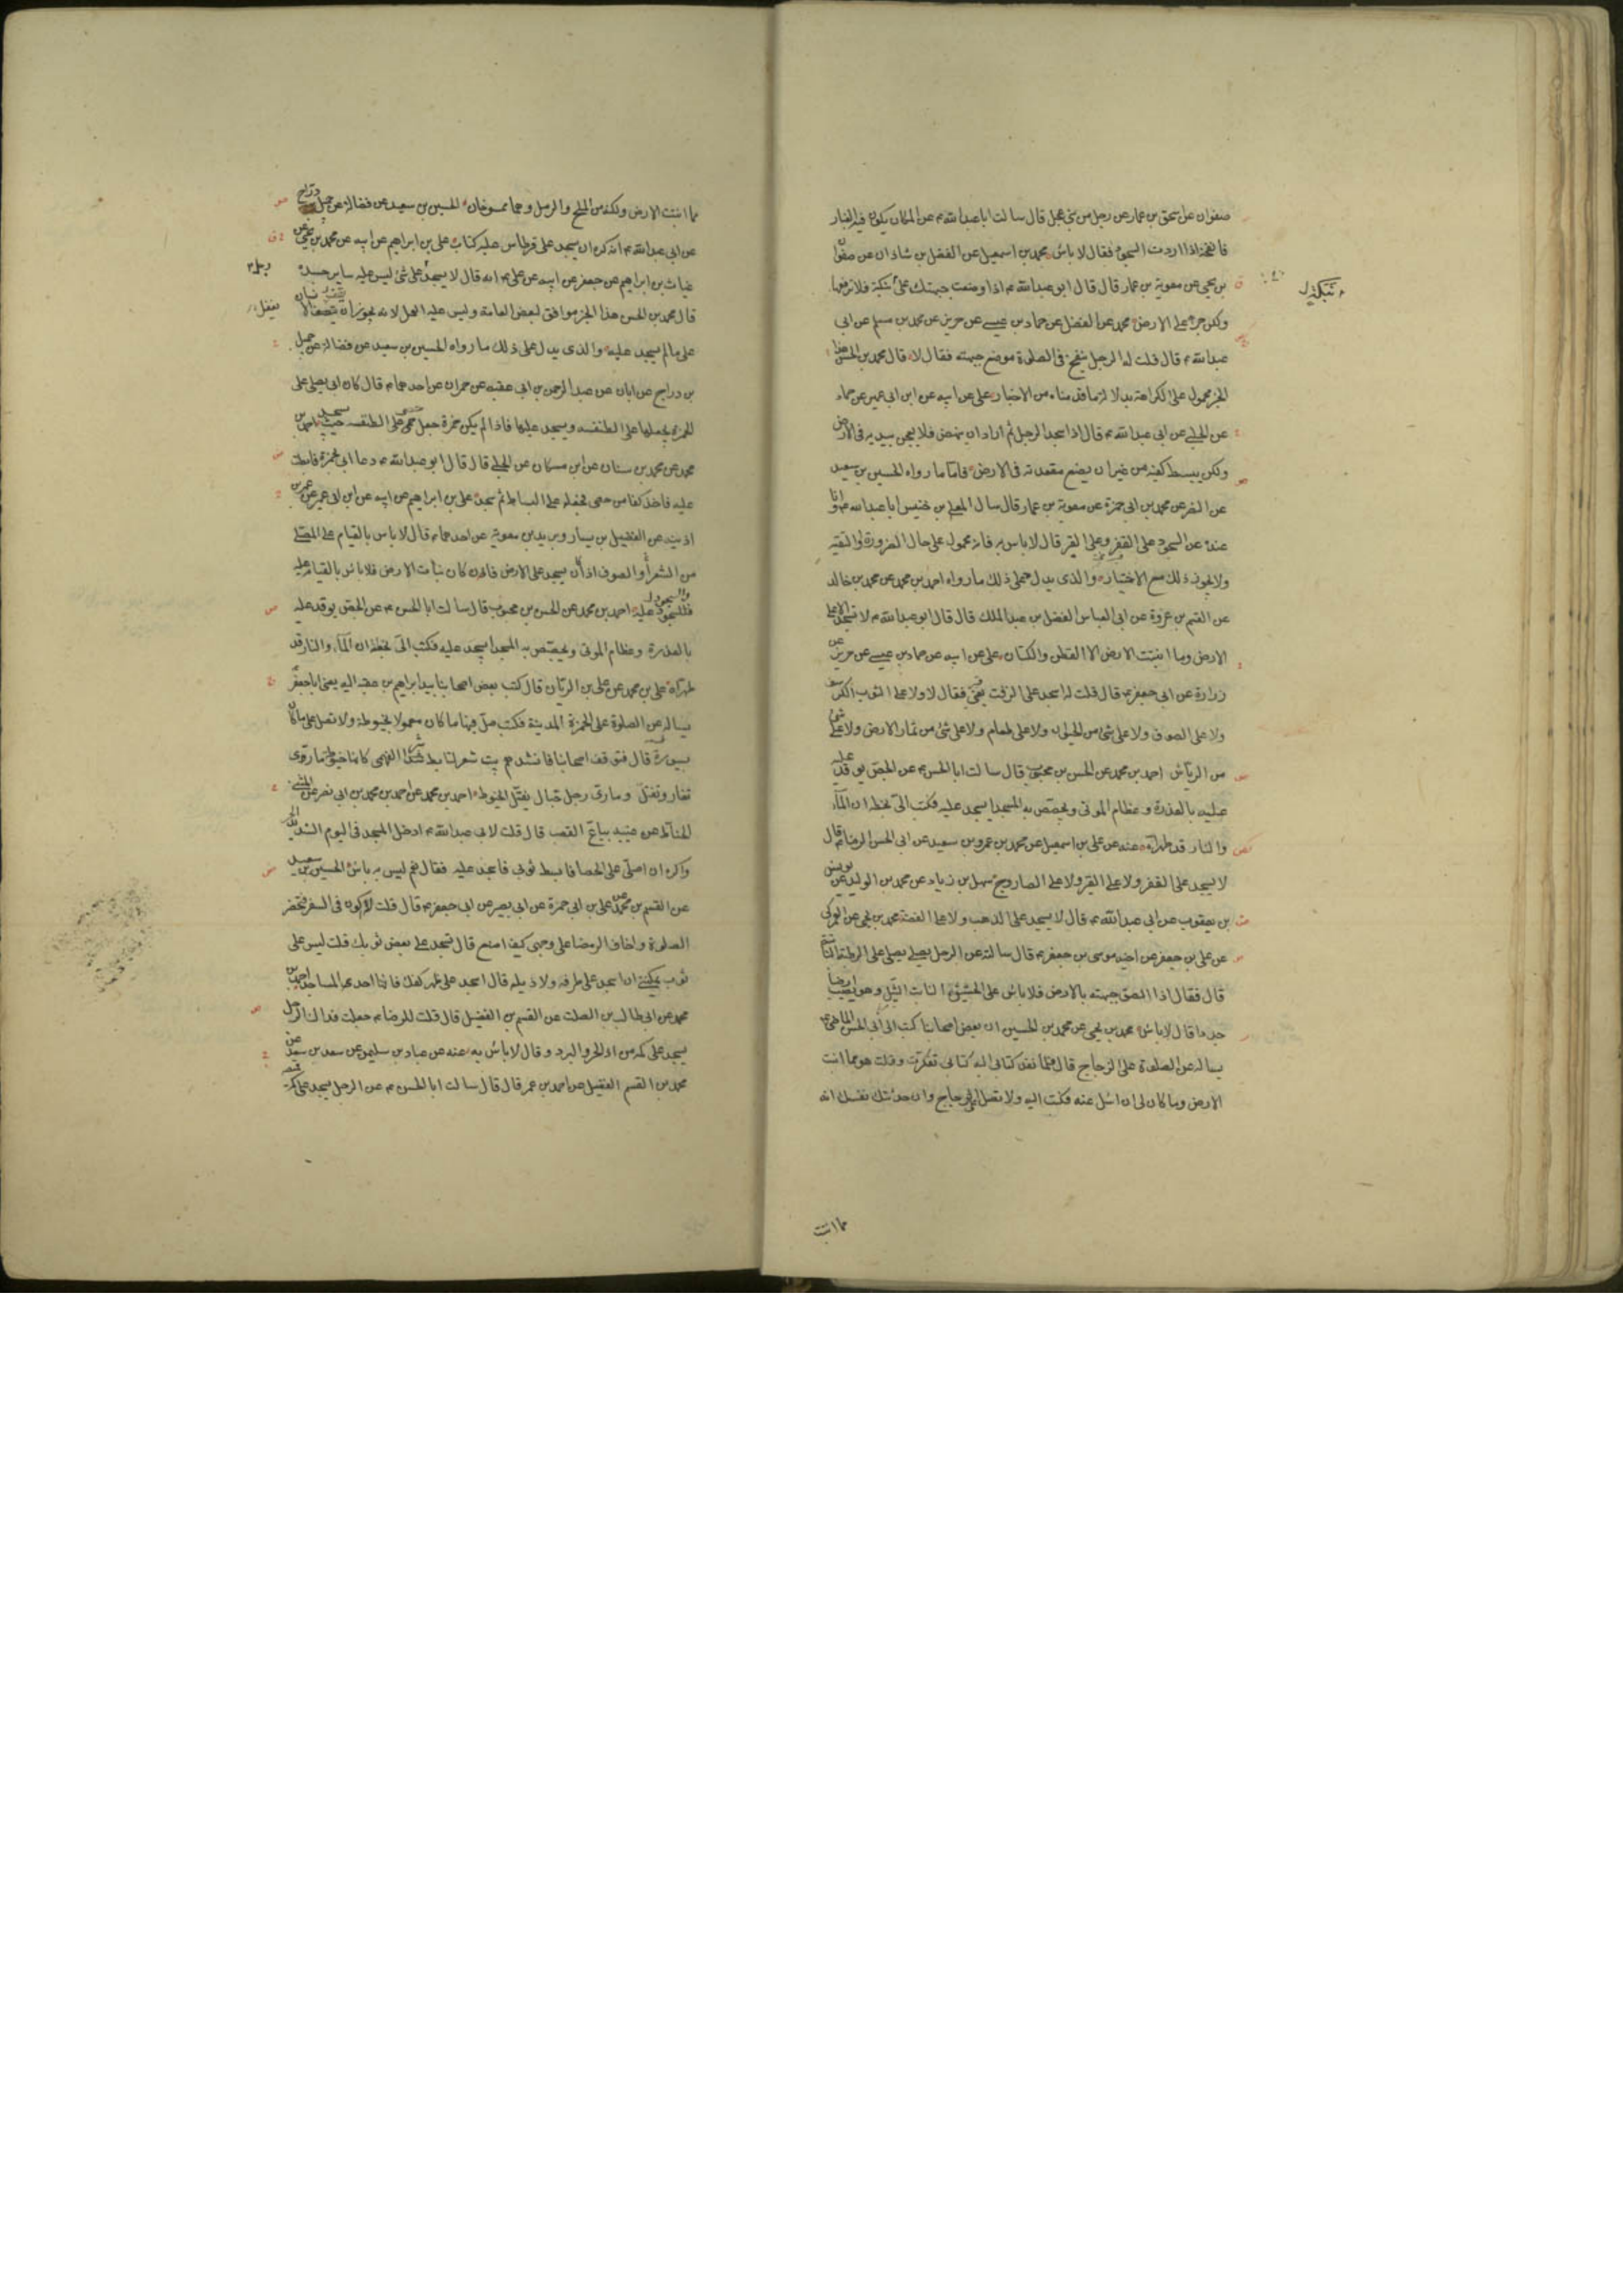 صفوان عن اسحق بن عمار عن رجل من بنى عجل قال سالت ابا عبد الله ع عن المكان يكون فيه الغبار
فانفخه اذا اردت السجود فقال لا باس محمد بن اسمعيل عن الفضل بن شاذان عن صفوان
بن يحيى عن معوية بن عمار قال قال ابو عبد الله ع اذا وضعت جبهتك على نبكة فلا ترفعها
نبكة ل
ولكن جرها على الارض محمد عن الفضل عن حماد بن عيسى عن حريز عن محمد بن مسلم عن ابى
عبد الله ع قال قلت له الرجل ينفخ فى الصلوة موضع جبهته فقال لا قال محمد بن الحسن هذا
الخبر محمول على الكراهة بدلالة ما قدمناه من الاخبار على عن ابيه عن ابن ابى عمير عن حماد
عن الحلبى عن ابى عبد الله ع قال اذا سجد الرجل ثم اراد ان ينهض فلا يعجن بيديه فى الارض
ولكن يبسط كفيه من غير ان يضع مقعدته فى الارض فاما ما رواه الحسين بن سعيد
عن النضر عن محمد بن ابى حمزة عن معوية بن عمار قال سال المعلى بن خنيس ابا عبد الله ع وانا
عنده عن السجود على القفر وعلى القير قال لا باس به فانه محمول على حال الضرورة او التقية
ولا يجوز ذلك مع الاختيار والذى يدل على ذلك ما رواه احمد بن محمد عن محمد بن خالد
عن القسم بن عروة عن ابى العباس الفضل بن عبد الملك قال قال ابو عبد الله ع لا تسجد الا على
الارض وما انبتت الارض الا القطن والكتان على عن ابيه عن حماد بن عيسى عن حريز عن
زرارة عن ابى جعفر ع قال قلت له اسجد على الزفت يعنى القير فقال لا ولا على الثوب الكرسف
ولا على الصوف ولا على شئ من الحيوان ولا على طعام ولا على شئ من ثمار الارض ولا على شئ
من الرياش احمد بن محمد عن الحسن بن محبوب قال سالت ابا الحسن ع عن الجص يوقد عليه
عليه بالعذرة وعظام الموتى ويجصص به المسجد ايسجد عليه فكتب الى بخطه ان الماء
والنار قد طهراه عنه عن على بن اسمعيل عن محمد بن عمرو بن سعيد عن ابى الحسن الرضا ع قال
لا يسجد على القفر ولا على القير ولا على الصاروج سهل بن زياد عن محمد بن الوليد عن يونس
بن يعقوب عن ابى عبد الله ع قال لا يسجد على الذهب ولا على الفضة محمد بن يحيى عن العمركى
عن على بن جعفر عن اخيه موسى بن جعفر ع قال سالته عن الرجل يصلى على الرطبة النابتة
قال فقال اذا الصق جبهته بالارض فلا باس على الحشيش النابت الثيل وهو يصيب ارضا
جددا قال لا باس محمد بن يحيى عن محمد بن الحسين ان بعض اصحابنا كتب الى ابى الحسن الماضى ع
يساله عن الصلوة على الزجاج قال فلما نفذ كتابى اليه كتابى تفكرت وقلت هو مما انبتت
الارض وما كان لى ان اسئل عنه فكتب اليه ولا تصل على الزجاج وان حدثتك نفسك انه
مما انبتت
مما انبتت الارض ولكنه من الملح والرمل وهما ممسوخان الحسين بن سعيد عن فضالة عن جميل دراج
عن ابى عبد الله ع انه كره ان يسجد على قرطاس عليه كتابة على بن ابراهيم عن ابيه عن محمد بن يحيى عن
غياث بن ابراهيم عن جعفر عن ابيه عن على ع انه قال لا يسجد على شئ ليس عليه ساير جسده
قال محمد بن الحسن هذا الخبر موافق لبعض العامة وليس عليه العمل لانه يجوز ان
على ما لم يسجد عليه والذى يدل على ذلك ما رواه الحسين بن سعيد عن فضالة عن جميل
بن دراج عن ابان عن عبد الرحمن بن ابى عقبه عن حمران عن احدهما ع قال كان ابى يصلى على
الخمرة يجعلها على الطنفسه ويسجد عليها فاذا لم يكن خمرة جعل حصى على الطنفسه حيث يسجد احمد بن
محمد عن محمد بن سنان عن ابن مسكان عن الحلبى قال قال ابو عبد الله ع دعا ابى بخمرة فابطت
عليه فاخذ كفا من حصى فجعله على البساط ثم سجد على بن ابراهيم عن ابيه عن ابن ابى عمير عن عمر بن
اذينه عن الفضيل بن يسار وبريد بن معوية عن احدهما ع قال لا باس بالقيام على المصلى
من الشعر والصوف اذا كان يسجد على الارض فان كان نبات الارض فلا باس بالقيام عليه
والسجود عليه احمد بن محمد عن الحسن بن محبوب قال سالت ابا الحسن ع عن الجص يوقد عليه
بالعذرة وعظام الموتى ويجصص به المسجد ايسجد عليه فكتب الى بخطه ان الماء والنار قد
طهراه على بن محمد عن على بن الريان قال كتب بعض اصحابنا بيد ابراهيم بن عقبه اليه يعنى ابا جعفر ع
يساله عن الصلوة على الخمرة المدينة فكتب صل فيها ما كان معمولا بخيوطة ولا تصل على ما كان
بسيورة قال فتوقف اصحابنا فانشدهم بيت شعر لتابط شرا الفهمى كانها خيوطة مارى
تغار وتفتل ومارى رجل حبال يفتل الخيوط احمد بن محمد عن احمد بن محمد بن ابى نصر عن المثنى
الحناط عن عيينه بياع القصب قال قلت لابى عبد الله ع ادخل المسجد فى اليوم الشديد الحر
واكره ان اصلى على الحصا فابسط ثوبى فاسجد عليه فقال نعم ليس به باس الحسين بن سعيد
عن القسم بن محمد عن على بن ابى حمزة عن ابى بصير عن ابى جعفر ع قال قلت له اكون فى السفر فتحضر
الصلوة واخاف الرمضا على وجهى كيف اصنع قال تسجد على بعض ثوبك قلت ليس على
ثوب يمكننى ان اسجد على طرفه ولا ذيله قال اسجد على ظهر كفك فانها احدى المساجد احمد بن
محمد عن ابى طالب بن الصلت عن القسم بن الفضيل قال قلت للرضا ع جعلت فداك الرجل
يسجد على كمه من اذى الحر والبرد وقال لا باس به عنه عن عباد بن سليمن عن سعد بن سعد عن
محمد بن القسم الفضيل عن احمد بن عمر قال قال سالت ابا الحسن ع عن الرجل يسجد على كم قميصه